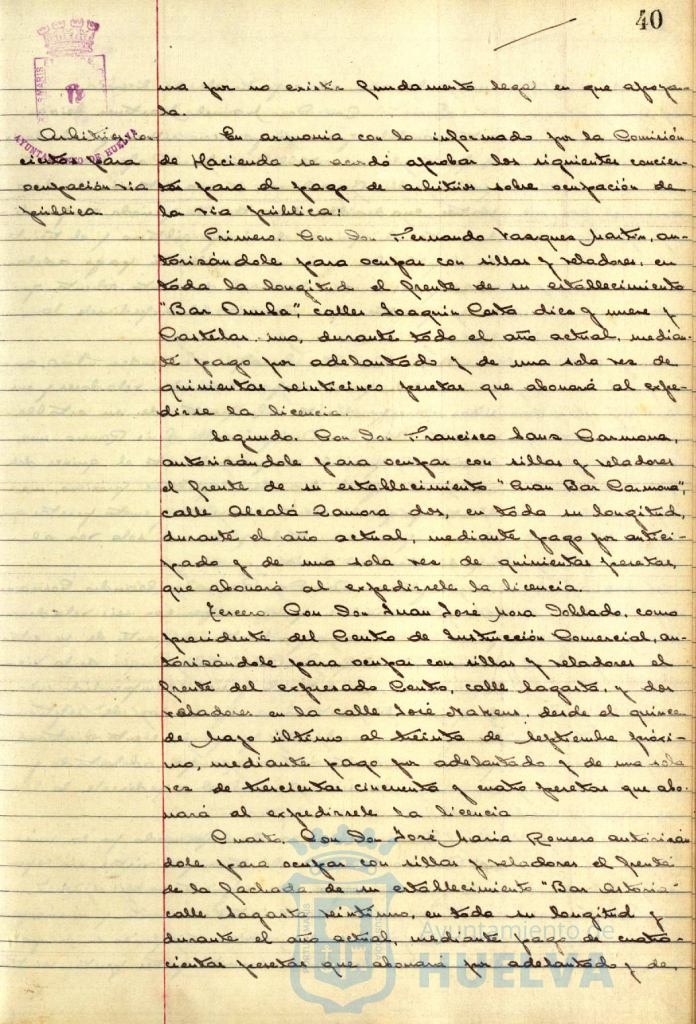 40
ma por no existir fundamento legal en que apoyar-
la.
Arbitrios con-
ciertos para
ocupación vía
pública
En armonía con lo informado por la Comisión
de Hacienda se acordó aprobar los siguientes concier-
tos para el pago de arbitrios sobre ocupación de
la vía pública:
Primero. Con Don Fernando Vazques Martín, au-
torizándole para ocupar con sillas y veladores, en
toda la longitud el frente de su establecimiento
"Bar Onuba", calles Joaquín Costa diez y nueve y
Castelar uno, durante todo el año actual, median-
te pago por adelantado y de una sola vez de
quinientas veinticinco pesetas que abonará al expe-
dirse la licencia.
Segundo. Con Don Francisco Sanz Carmona,
autorizándole para ocupar con sillas y veladores
el frente de su establecimiento "Gran Bar Carmona",
calle Alcalá Zamora dos, en toda su longitud,
durante el año actual, mediante pago por antici-
pado y de una sola vez de quinientas pesetas,
que abonará al expedirsele la licencia.
Tercero. Con Don Juan José Mora Doblado, como
presidente del Centro de Instrucción Comercial, au-
torizándole para ocupar con sillas y veladores el
frente del expresado Centro, calle Sagasta, y dos
veladores en la calle José Nakens, desde el quince
de Mayo último al treinta de Septiembre próxi-
mo, mediante pago por adelantado y de una sola
vez de trescientas cincuenta y cuatro pesetas que abo-
nará al expedirsele la licencia
Cuarto. Con Don José María Romero autorizán
dole para ocupar con sillas y veladores el frente
de la fachada de su establecimiento "Bar Astoria"
calle Sagasta veintiuno, en toda su longitud y
durante el año actual, mediante pago de cuatro-
cientas pesetas que abonará por adelantado y de
AYUNTAMIENTO DE HUELVA
Ayuntamiento de
HUELVA